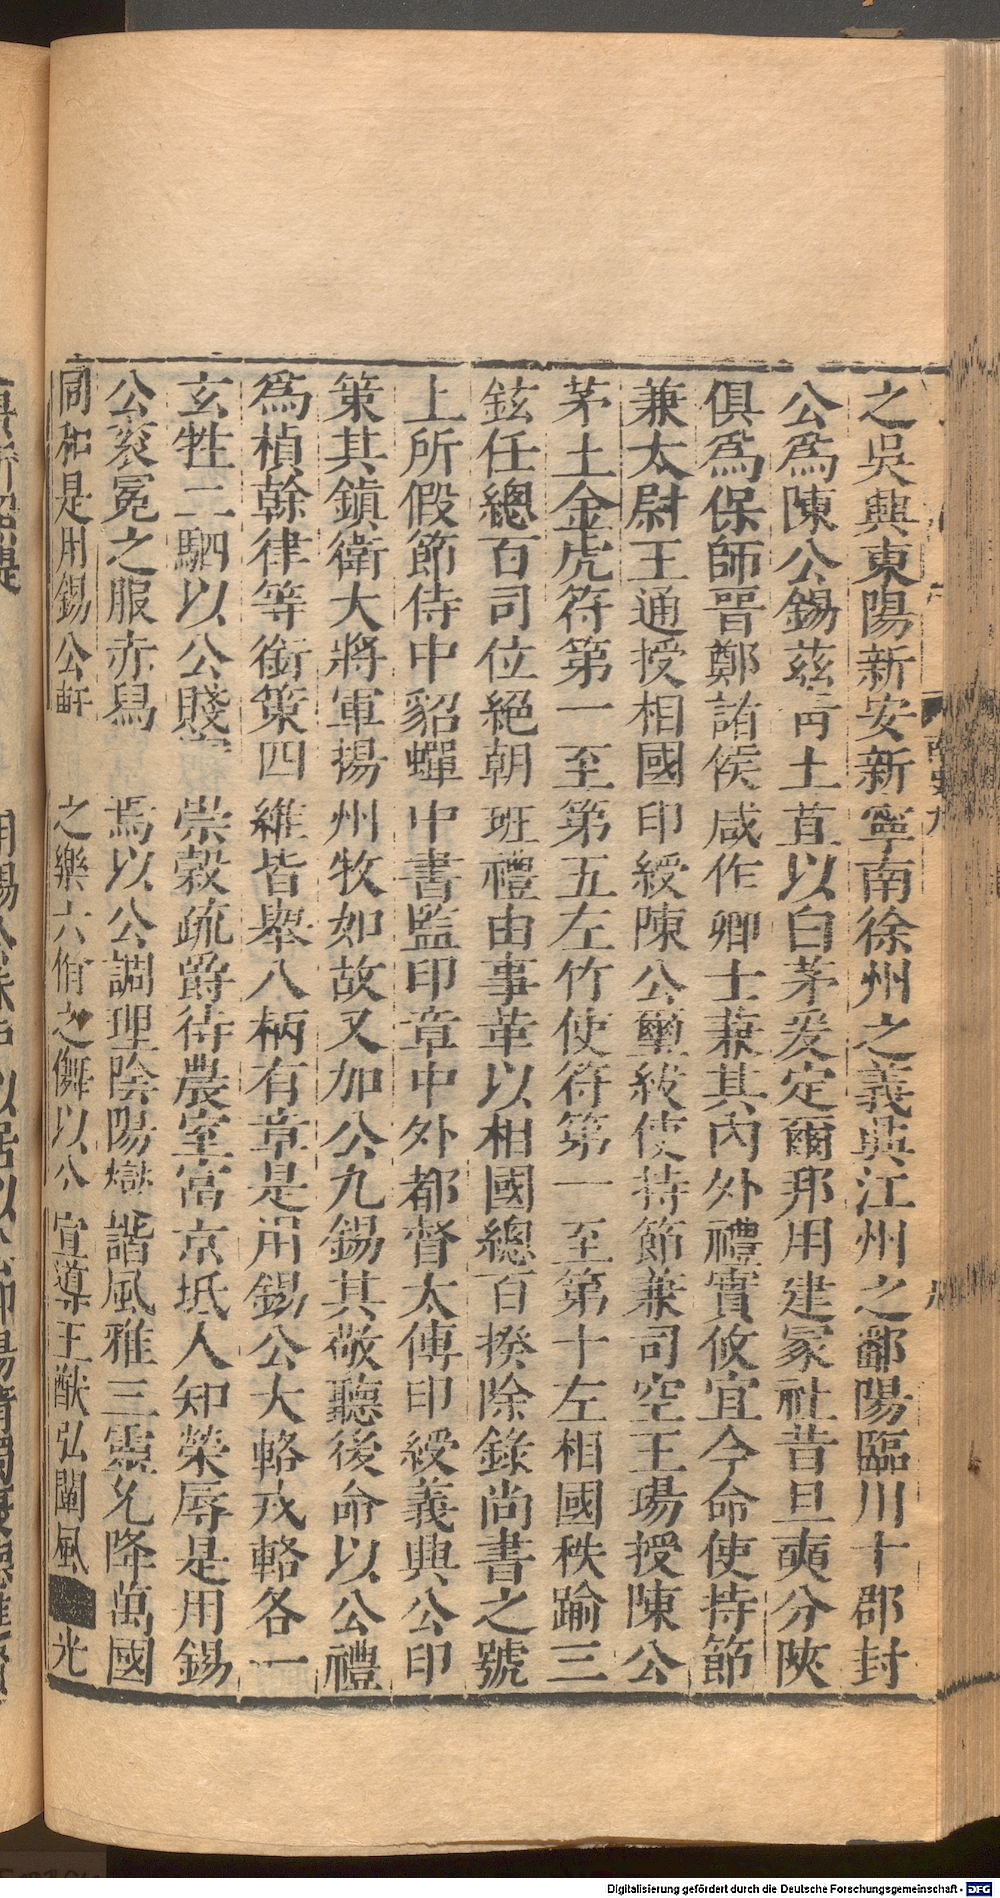 之吳興東陽新安新寧南徐州之義興江州之鄱陽臨川十郡封
公爲陳公錫茲青土苴以白茅爰定爾邦用建冢社昔旦奭分陝
俱爲保師晋鄭諸侯咸作卿士兼其內外禮實攸宜今命使持節
兼太尉王通授相國印綬陳公璽紱使持節兼司空王瑒授陳公
茅土金虎符第一至第五左竹使符第一至第十左相國秩踰三
鉉任總百司位絕朝班禮由事革以相國總百揆除錄尚書之號
上所假節侍中貂蟬中書監印章中外都督太傅印綬義興公印
策其鎮衛大將軍揚州牧如故又加公九錫其敬聽後命以公禮
爲楨幹律等銜策四維皆舉八柄有章是用錫公大輅戎輅各一
玄牡二駟以公賤寶崇穀疏爵待農室富京坻人知榮辱是用錫
公袞冕之服赤舄焉以公調理陰陽燮諧風雅三靈允降萬國
同和是用錫公軒之樂六佾之儛以公宣導王猷弘闡風光
南史九
Digitalisierung gefördert durch die Deutsche Forschungsgemeinschaft - DFG